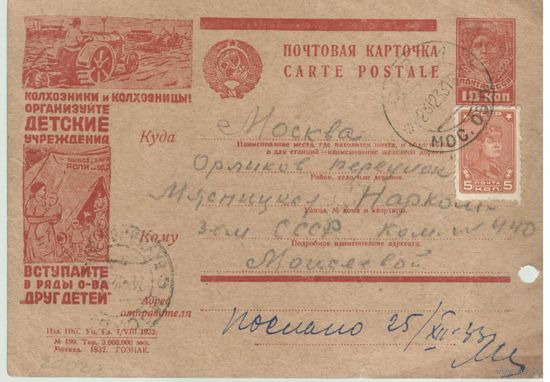 ПОЧТОВАЯ КАРТОЧКА
CARTE POSTALE
10 КОП
5 ПОЧТА КОП. 5
МОС. ОБЛ
КОЛХОЗНИКИ и КОЛХОЗНИЦЫ!
ОРГАНИЗУЙТЕ
ДЕТСКИЕ
УЧРЕЖДЕНИЯ
ВСТУПАЙТЕ
В РЯДЫ О-ВА
"ДРУГ ДЕТЕЙ"
Куда
Москва
Наименование места, где находится почта, и
а для станций—наименование железной дороги
Орликов переулок
Район, село или деревня.
Мясницкая Нарком
Улица, № дома и квартиры.
Кому
зем СССР ком. № 440
Подробное наименование адресата.
Моисеевой
Адрес
отправителя
Послано 25/XII-33
Изд. НКС Уп. Гл. 7/VIII 1932.
№ 199. Тир. 3.000.000 экз.
Москва. 1932. ГОЗНАК.